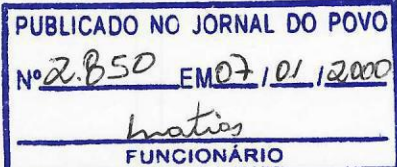 PUBLICADO NO JORNAL DO POVO
Nº 2.850 EM 07/01/2000
Matias
FUNCIONÁRIO